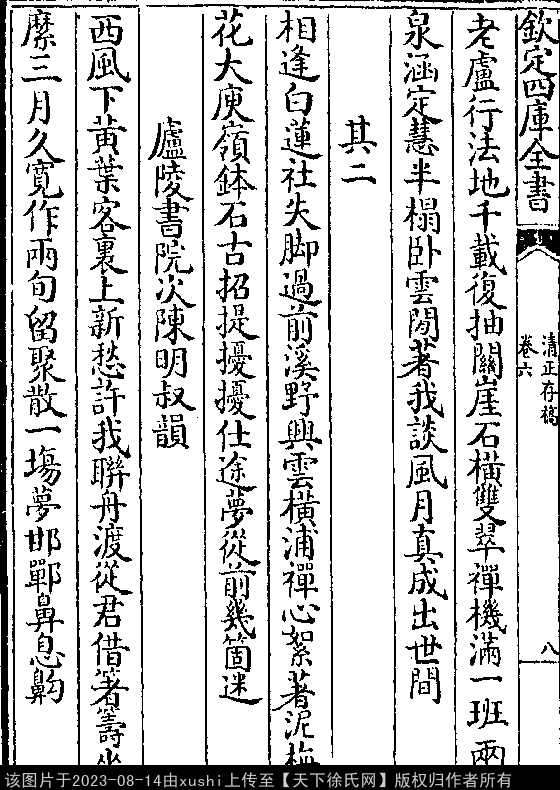 欽定四庫全書
清正存稿
卷六
八
老盧行法地千載復抽關崖石橫雙翠禪機滿一班兩
泉涵定慧半榻卧雲閒著我談風月真成出世間
其二
相逢白蓮社失脚過前溪野興雲橫浦禪心絮著泥梅
花大庾嶺鉢石古招提擾擾仕途夢從前幾箇迷
廬陵書院次陳明叔韻
西風下黃葉客裏上新愁許我聯舟渡從君借箸籌坐
縻三月久寛作兩旬留聚散一塲夢邯鄲鼻息齁
该图片于2023-08-14由xushi上传至【天下徐氏网】版权归作者所有